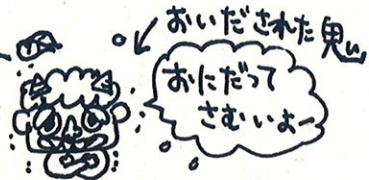 おいだされた鬼
おにだって
さむいよー